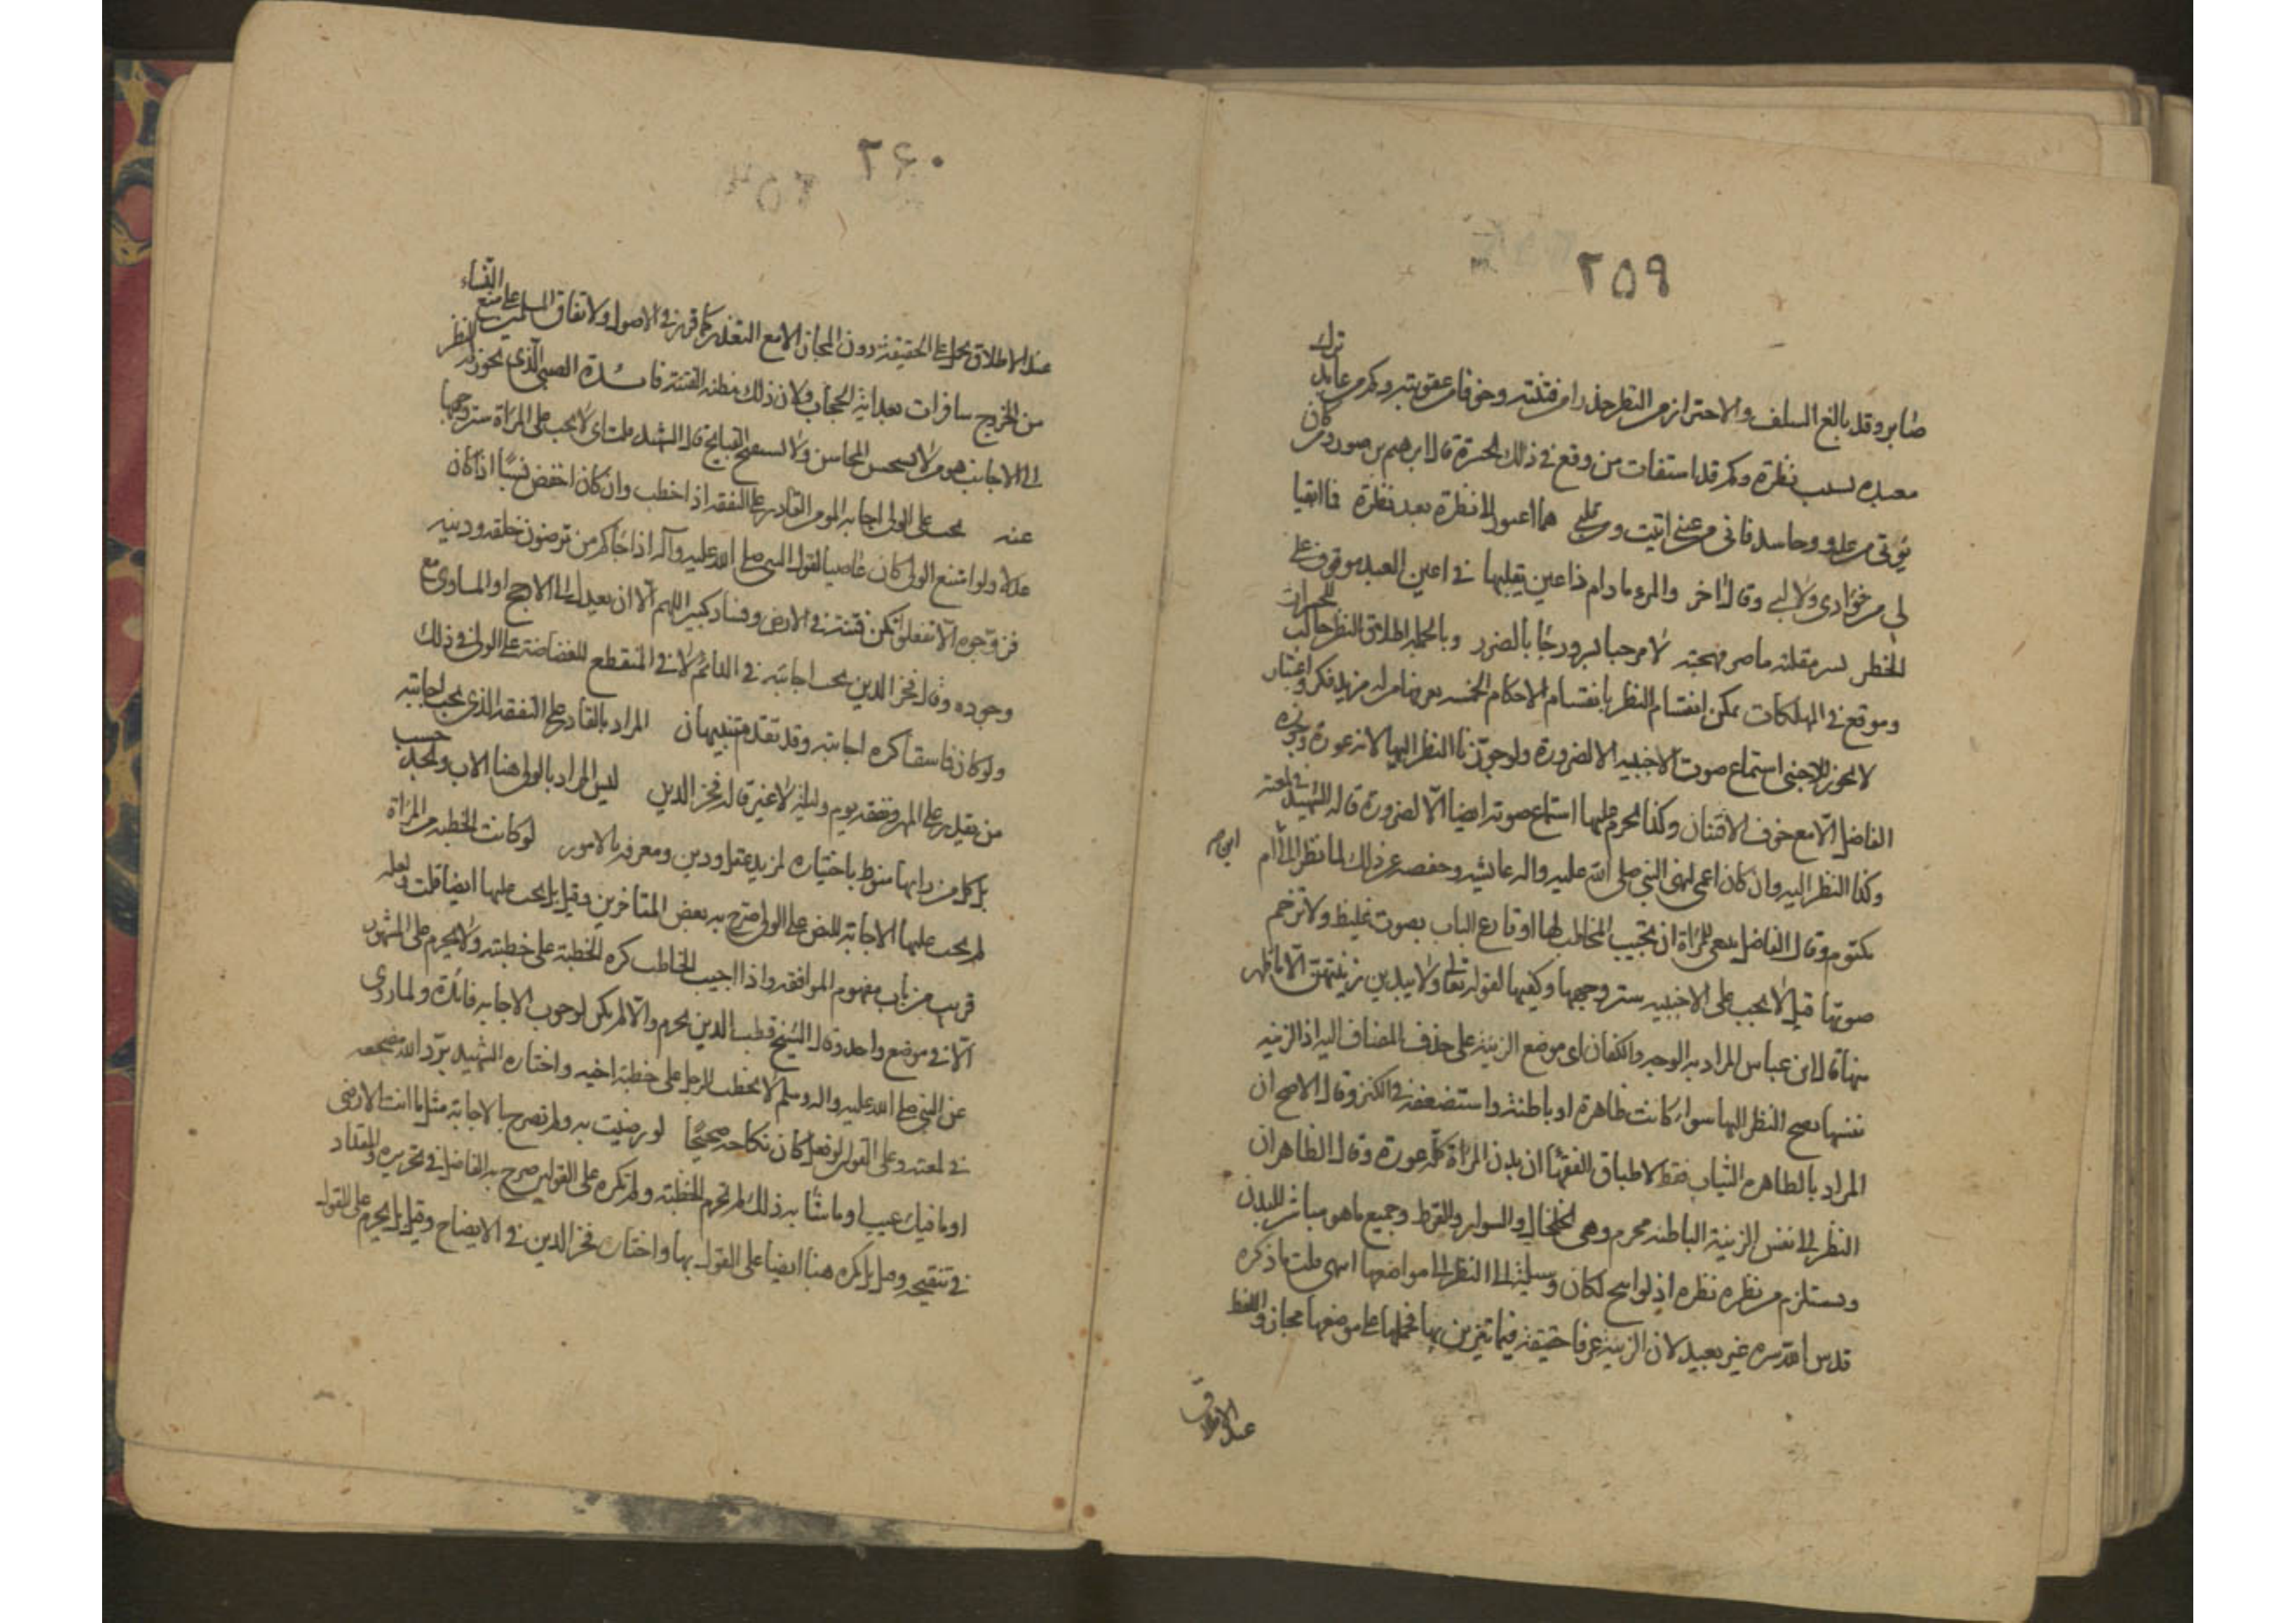 ٢٥٩
صابر وقد بالغ السلف والاحتراز من النظر حذرا من فتنته وخوفا من عقوبته وكم من عابد ترك
معبده بسبب نظرة وكم قد استفات من وقع في ذلك قال ابرهيم بن صول ومن كان
يؤتى من عدو وحاسد فاني من عيني اتيت ومن قلبي هما اعتور الا نظرة بعد نظرة فما ابقيا
لي من فؤادي ولا لبي وقال اخر والمرء ما دام ذا عين يقلبها في اعين العين موقوف على
الخطر يسر مقلته ما ضر مهجته لا مرحبا بسرور جا بالضرر وبالجملة اطلاق النظر جالب للحسرات
وموقع في المهلكات يمكن انقسام النظر بانقسام الاحكام الخمسه يعرفها من له مزيد فكر واعتبار
لا يجوز للاجنبي استماع صوت الاجنبيه الا لضرورة ولو جوزنا النظر اليها لانه عورة وجوزه
الفاضل الا مع خوف الافتتان وكذا يحرم عليها استماع صوته ايضا الا لضرورة قاله الشهيد في لمعته
وكذا النظر اليه وان كان اعمى لنهي النبي صلى الله عليه واله عايشه وحفصه عن ذلك لما نظرتا الى ابن ام
مكتوم وقال الفاضل ينبغي للمراة ان تجيب المخاطب لها او قارع الباب بصوت غليظ ولا ترخم
صوتها قيل لا يجب على الاجنبيه ستر وجهها وكفيها لقوله تعالى ولا يبدين زينتهن الا ما ظهر
منها قال ابن عباس المراد به الوجه والكفان اي موضع الزينة على حذف المضاف اليه اذ الزينه
نفسها يصح النظر اليها سواء كانت ظاهرة او باطنة واستضعفه في الكنز وقال الاصح ان
المراد بالظاهره الثياب فقط لاطباق الفقهاء ان بدن المراة كله عورة وقال الظاهر ان
النظر الى نفس الزينة الباطنه محرم وهي الخلخال والسوار والقرط وجميع ما هو مباشر للبدن
ويستلزم من نظره نظره اذ لو ابيح لكان وسيلة الى النظر الى مواضعها انتهى قلت ما ذكره
قدس الله سره غير بعيد لان الزينة عرفا حقيقة فيما تتزين بها فحملها على موضعها مجاز واللفظ
عند الاطلاق
٢٦٠
عند الاطلاق يحمل على الحقيقة دون المجاز الا مع التعذر كما قرر في الاصول ولاتفاق المسلمين على منع النساء
من الخروج سافرات بعد اية الحجاب ولان ذلك مظنه الفتنة فائدة الصبي الذي يجوز له النظر
الى الاجانب هو من لا يستحسن المحاسن ولا يستقبح القبايح قال الشهيد قلت اي لا يجب على المراة ستر وجهها
عنه يجب على الولي اجابه المومن القادر على النفقه اذا خطب وان كان اخفض نسبا اذا كان
عدلا ولو امتنع الولي كان عاصيا لقول النبي صلى الله عليه وآله اذا جاكم من ترضون خلقه ودينه
فزوجوه الا تفعلوا تكن فتنة في الارض وفساد كبير اللهم الا ان يعدل الى الارجح او المساوي مع
وجوده وقال فخر الدين يجب اجابته في الدائم لا في المنقطع للغضاضة على الولي في ذلك
ولو كان فاسقا كره اجابته وقد تقدم تنبيهان المراد بالقادر على النفقه الذي يجب اجابته
من يقدر على المهر ونفقه يوم وليلة لا غير قاله فخر الدين ليس المراد بالولي هنا الاب والجد حسب
بل كل من رايها منوط باختياره لمزيد عقل ودين ومعرفه بالامور لو كانت الخطبه من المراة
لم يجب عليها الاجابة للنص على الولي صرح به بعض المتاخرين وقيل بل يجب عليها ايضا قلت ولعله
قريب من باب مفهوم الموافقه واذا اجيب الخاطب كره الخطبة على خطبته ولا يحرم على المشهور
الا في موضع واحد وقال الشيخ قطب الدين يحرم والا لم يكن لوجوب الاجابه فائدة ولما روي
عن النبي صلى الله عليه واله وسلم لا يخطب الرجل على خطبة اخيه واختاره الشهيد برد الله مضجعه
في لمعته وعلى القول لو فعل كان نكاحه صحيحا لو رضيت به ولم تصرح بالاجابة مثل ما انت الا رضى
او ما فيك عيب او ما شابه ذلك لم تحرم الخطبة ولم تكره على القولين صرح به الفاضل في تحريره والمقداد
في تنقيحه وقيل بل يكره هنا ايضا على القول بها واختاره فخر الدين في الايضاح وقيل بل يحرم على القول